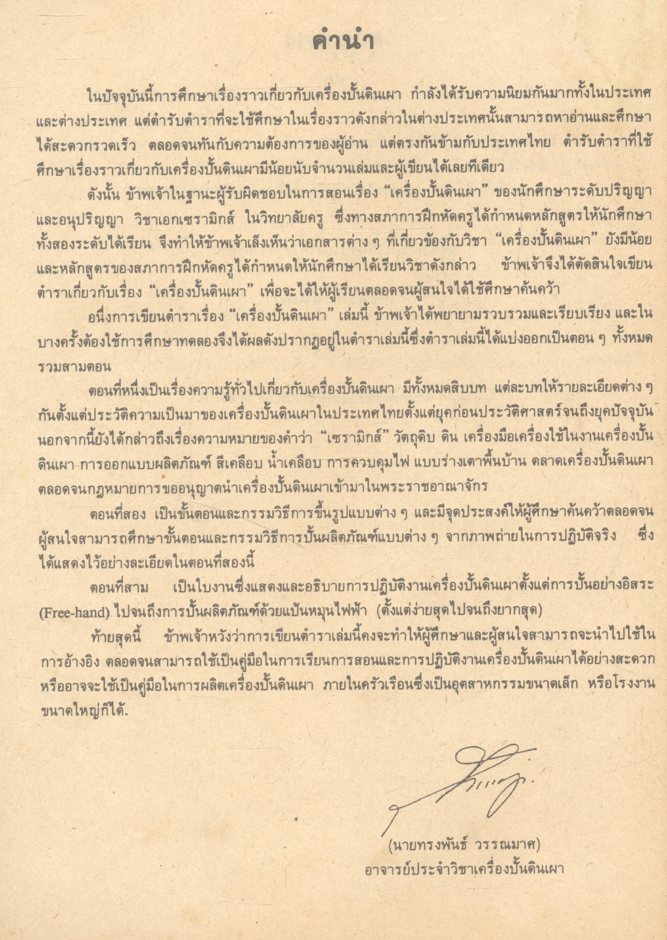 คำนำ
ในปัจจุบันนี้การศึกษาเรื่องราวเกี่ยวกับเครื่องปั้นดินเผา กำลังได้รับความนิยมกันมากทั้งในประเทศ
และต่างประเทศ แต่ตำรับตำราที่จะใช้ศึกษาในเรื่องราวดังกล่าวในต่างประเทศนั้นสามารถหาอ่านและศึกษา
ได้สะดวกรวดเร็ว ตลอดจนทันกับความต้องการของผู้อ่าน แต่ตรงกันข้ามกับประเทศไทย ตำรับตำราที่ใช้
ศึกษาเรื่องราวเกี่ยวกับเครื่องปั้นดินเผามีน้อยนับจำนวนเล่มและผู้เขียนได้เลยทีเดียว
ดังนั้น ข้าพเจ้าในฐานะผู้รับผิดชอบในการสอนเรื่อง “เครื่องปั้นดินเผา” ของนักศึกษาระดับปริญญา
และอนุปริญญา วิชาเอกเซรามิกส์ ในวิทยาลัยครู ซึ่งทางสภาการฝึกหัดครูได้กำหนดหลักสูตรให้นักศึกษา
ทั้งสองระดับได้เรียน จึงทำให้ข้าพเจ้าเล็งเห็นว่าเอกสารต่าง ๆ ที่เกี่ยวข้องกับวิชา “เครื่องปั้นดินเผา” ยังมีน้อย
และหลักสูตรของสภาการฝึกหัดครูได้กำหนดให้นักศึกษาได้เรียนวิชาดังกล่าว ข้าพเจ้าจึงได้ตัดสินใจเขียน
ตำราเกี่ยวกับเรื่อง “เครื่องปั้นดินเผา” เพื่อจะได้ให้ผู้เรียนตลอดจนผู้สนใจได้ใช้ศึกษาค้นคว้า
อนึ่งการเขียนตำราเรื่อง “เครื่องปั้นดินเผา” เล่มนี้ ข้าพเจ้าได้พยายามรวบรวมและเรียบเรียง และใน
บางครั้งต้องใช้การศึกษาทดลองจึงได้ผลดังปรากฏอยู่ในตำราเล่มนี้ซึ่งตำราเล่มนี้ได้แบ่งออกเป็นตอน ๆ ทั้งหมด
รวมสามตอน
ตอนที่หนึ่งเป็นเรื่องความรู้ทั่วไปเกี่ยวกับเครื่องปั้นดินเผา มีทั้งหมดสิบบท แต่ละบทให้รายละเอียดต่าง ๆ
กันตั้งแต่ประวัติความเป็นมาของเครื่องปั้นดินเผาในประเทศไทยตั้งแต่ยุคก่อนประวัติศาสตร์จนถึงยุคปัจจุบัน
นอกจากนี้ยังได้กล่าวถึงเรื่องความหมายของคำว่า “เซรามิกส์” วัตถุดิบ ดิน เครื่องมือเครื่องใช้ในงานเครื่องปั้น
ดินเผา การออกแบบผลิตภัณฑ์ สีเคลือบ น้ำเคลือบ การควบคุมไฟ แบบร่างเตาพื้นบ้าน ตลาดเครื่องปั้นดินเผา
ตลอดจนกฎหมายการขออนุญาตนำเครื่องปั้นดินเผาเข้ามาในพระราชอาณาจักร
ตอนที่สอง เป็นขั้นตอนและกรรมวิธีการขึ้นรูปแบบต่าง ๆ และมีจุดประสงค์ให้ผู้ศึกษาค้นคว้าตลอดจน
ผู้สนใจสามารถศึกษาขั้นตอนและกรรมวิธีการปั้นผลิตภัณฑ์แบบต่าง ๆ จากภาพถ่ายในการปฏิบัติจริง ซึ่ง
ได้แสดงไว้อย่างละเอียดในตอนที่สองนี้
ตอนที่สาม เป็นใบงานซึ่งแสดงและอธิบายการปฏิบัติงานเครื่องปั้นดินเผาตั้งแต่การปั้นอย่างอิสระ
(Free-hand) ไปจนถึงการปั้นผลิตภัณฑ์ด้วยแป้นหมุนไฟฟ้า (ตั้งแต่ง่ายสุดไปจนถึงยากสุด)
ท้ายสุดนี้ ข้าพเจ้าหวังว่าการเขียนตำราเล่มนี้คงจะทำให้ผู้ศึกษาและผู้สนใจสามารถจะนำไปใช้ใน
การอ้างอิง ตลอดจนสามารถใช้เป็นคู่มือในการเรียนการสอนและการปฏิบัติงานเครื่องปั้นดินเผาได้อย่างสะดวก
หรืออาจจะใช้เป็นคู่มือในการผลิตเครื่องปั้นดินเผา ภายในครัวเรือนซึ่งเป็นอุตสาหกรรมขนาดเล็ก หรือโรงงาน
ขนาดใหญ่ก็ได้.
(นายทรงพันธ์ วรรณมาศ)
อาจารย์ประจำวิชาเครื่องปั้นดินเผา